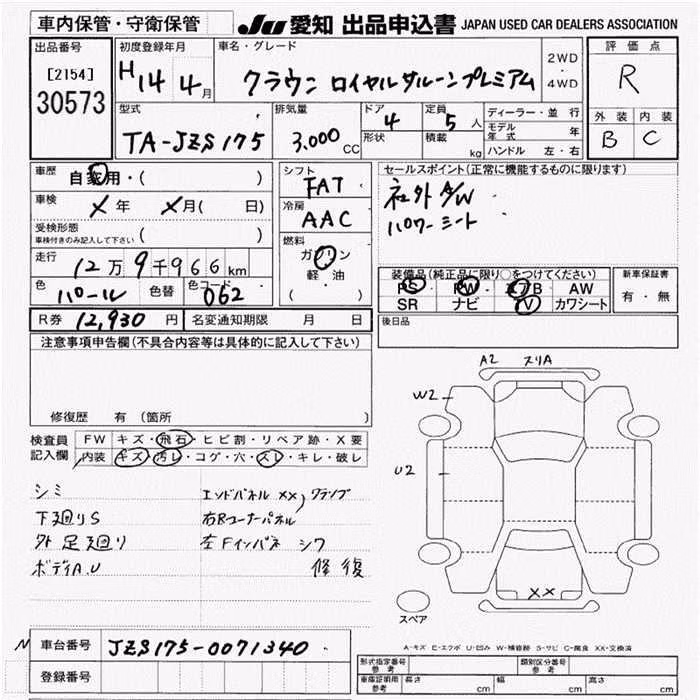 車内保管・守衛保管 JU 愛知 出品申込書 JAPAN USED CAR DEALERS ASSOCIATION
出品番号
[2154]
30573
初度登録年月
H14 4月
車名・グレード
クラウン ロイヤルサルーンプレミアム
2WD
・
4WD
評価点
R
外装 内装
B C
型式
TA-JZS175
排気量
3,000 CC
ドア 4
形状
定員 5 人
積載 kg
ディーラー・並行
モデル年式 年
ハンドル 左・右
車歴 自家用・( )
車検 X 年 X 月( 日)
受検形態
車検付きのみ記入して下さい ( )
走行 12万9千966km
色 パール 色替 色コード 062
R券 12,930 円 名変通知期限 月 日
シフト
FAT
冷房
AAC
燃料
ガソリン
軽・油
( )
セールスポイント(正常に機能するものに限ります)
社外A/W
パワーシート
装備品(純正品に限り○をつけてください)
PS PW エアB AW
SR ナビ TV カワシート
新車保証書
有・無
後日品
注意事項申告欄(不具合内容等は具体的に記入して下さい)
修復歴 有(箇所 )
検査員
記入欄
FW キズ・飛石・ヒビ割・リペア跡・X要
内装 キズ・汚レ・コゲ・穴・スレ・キレ・破レ
シミ エンドパネルXX、クランプ
下廻りS 右Rコーナーパネル
外 足廻り 左Fインパネ シワ
ボディA.U 修復
A2 スリA
W2
U2
XX
スペア
A-キズ E-エクボ U-凹み W-補修跡 S-サビ C-腐食 XX-交換済
N 車台番号 JZS175-0071340
登録番号
形式指定番号 参考
類別区分番号 参考
車庫証明用 参考 長さ cm 幅 cm 高さ cm